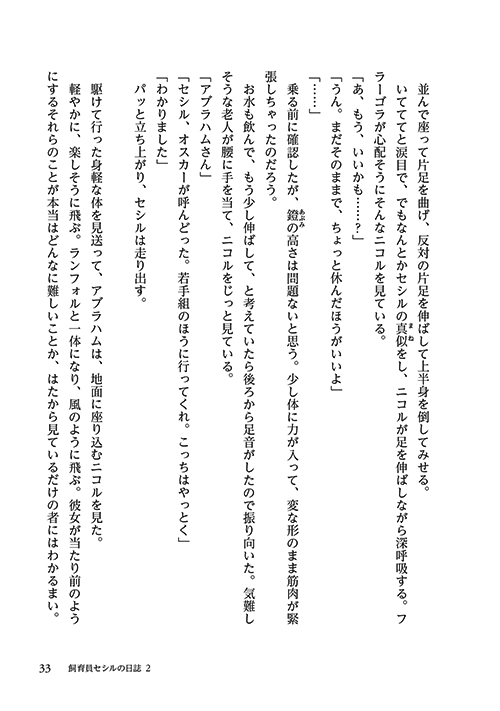 並んで座って片足を曲げ、反対の片足を伸ばして上半身を倒してみせる。
いてててと涙目で、でもなんとかセシルの真似をし、ニコルが足を伸ばしながら深呼吸する。フ
ラーゴラが心配そうにそんなニコルを見ている。
「あ、もう、いいかも……？」
「うん。まだそのままで、ちょっと休んだほうがいいよ」
「……」
乗る前に確認したが、鐙の高さは問題ないと思う。少し体に力が入って、変な形のまま筋肉が緊
張しちゃったのだろう。
お水も飲んで、もう少し伸ばして、と考えていたら後ろから足音がしたので振り向いた。気難し
そうな老人が腰に手を当て、ニコルをじっと見ている。
「アブラハムさん」
「セシル、オスカーが呼んどった。若手組のほうに行ってくれ。こっちはやっとく」
「わかりました」
パッと立ち上がり、セシルは走り出す。
駆けて行った身軽な体を見送って、アブラハムは、地面に座り込むニコルを見た。
軽やかに、楽しそうに飛ぶ。ランフォルと一体になり、風のように飛ぶ。彼女が当たり前のよう
にするそれらのことが本当はどんなに難しいことか、はたから見ているだけの者にはわかるまい。
33 飼育員セシルの日誌 2